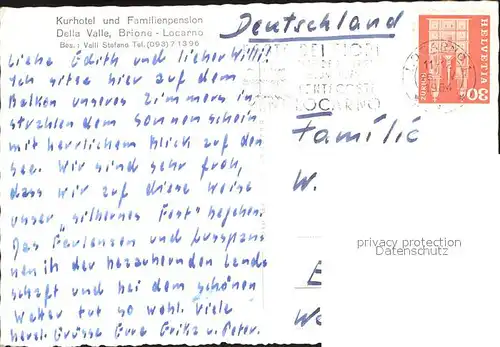 Kurhotel und Familienpension
Della Valle, Brione - Locarno
Bes.: Valli Stefano Tel. (093) 71396
Deutschland
Liebe Edith und lieber Willi!
Ich sitze hier auf dem
Balkon unseres Zimmers in
strahlendem Sonnenschein
mit herrlichem Blick auf den
See. Wir sind sehr froh,
dass wir auf diese Weise
unser "silbernes Fest" begehen.
Das Faulenzen und Ausspan-
nen in der bezaubernden Land-
schaft und bei dem schönen
Wetter tut so wohl. Viele
herzl. Grüsse Eure u. Peter.
LOCARNO
LOCARNO
HELVETIA
30
ZÜRICH
Familie
W.
E
W
privacy protection
Datenschutz